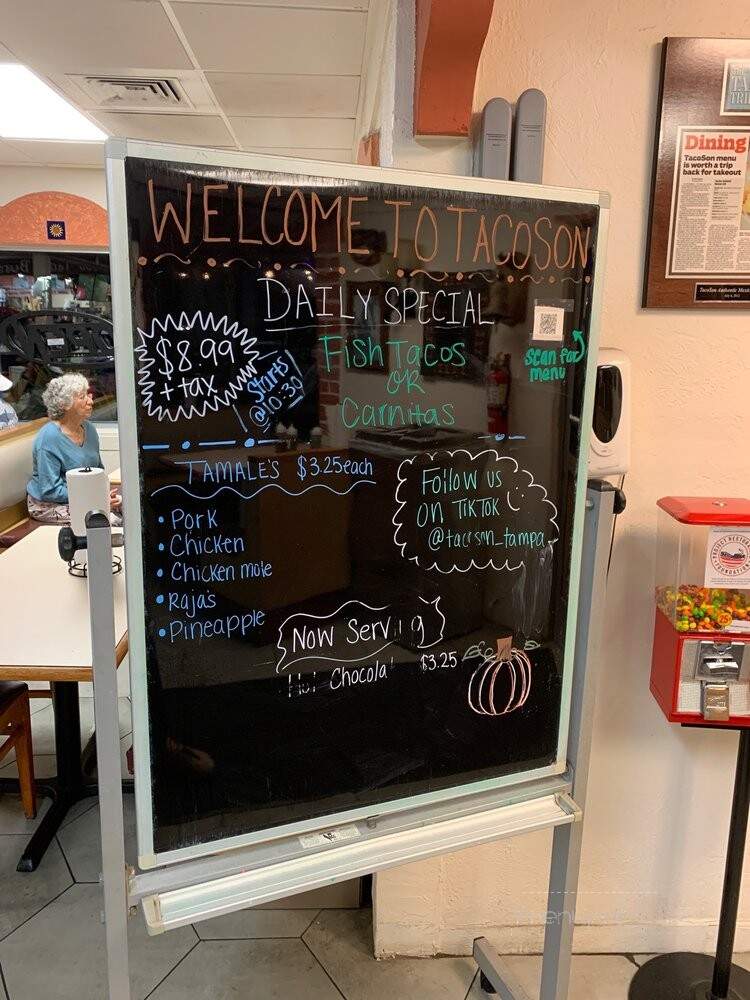 WELCOME TO TACOSON
DAILY SPECIAL
$8.99
+ tax
Starts
@10:30
Fish Tacos
OR
Carnitas
scan for
menu
TAMALE'S $3.25 each
• Pork
• Chicken
• Chicken mole
• Raja's
• Pineapple
Follow us
on TIKTOK
@tacoson_tampa
Now Serv i g
Hot Chocola $3.25
Dining
TacoSon menu
is worth a trip
back for takeout